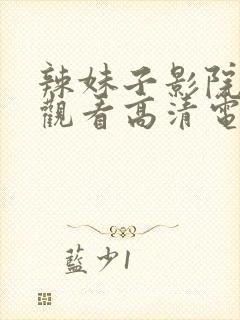 辣妹子影院
觀看高清電
藍少1